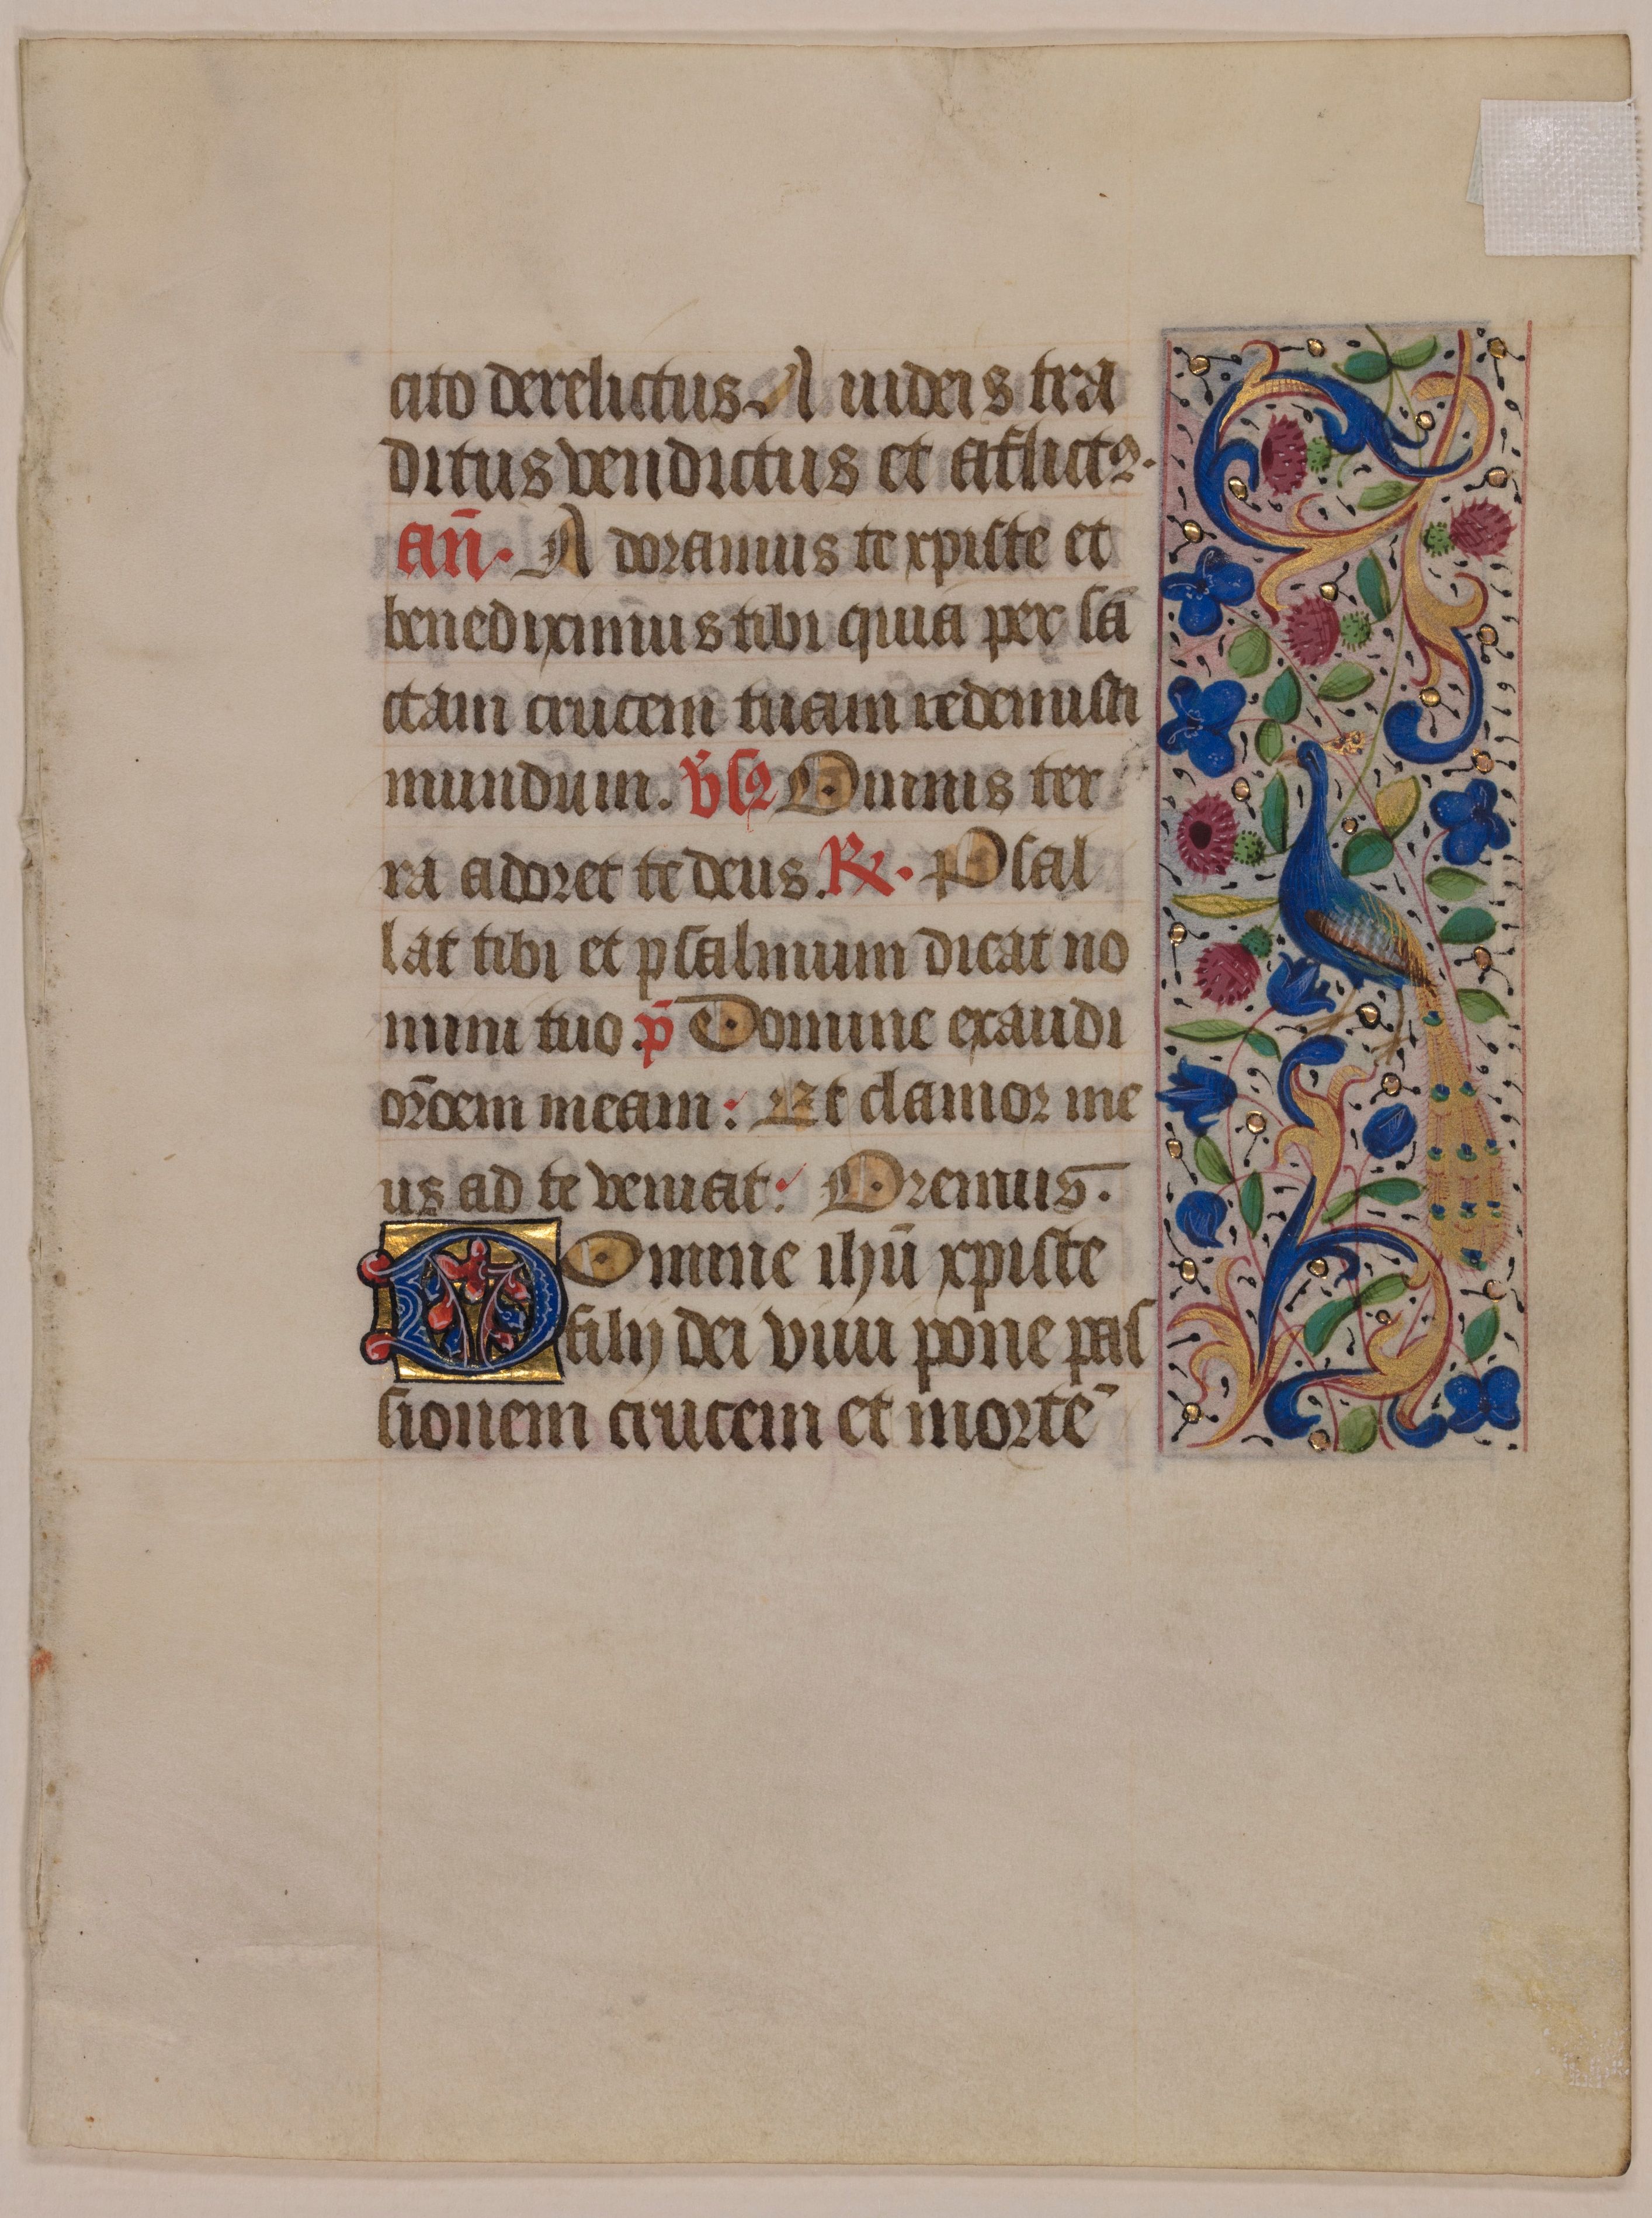 cito derelictus A iudeis tra
ditus vendictus et aflictꝯ.
an̄. A doramus te xpiste et
benediximus tibi quia per sā
ctam crucem tuam redemisti
mundum. v̄sꝯ Omnis ter
ra adoret te deus. ℟. Psal
lat tibi et psalmum dicat no
mini tuo. p̄ Domine exaudi
or̄oem meam: Et clamor me
us ad te veniat: Oremus.
DOmine ihū xpiste
filij dei viui pone pas
sionem crucem et mortē